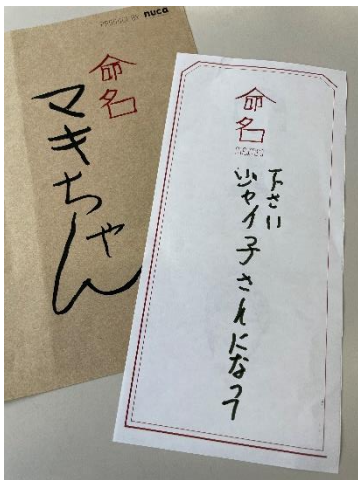 PRODUCE BY nuca
命名
マキちゃん
命名
シャイ子さんになって
下さい